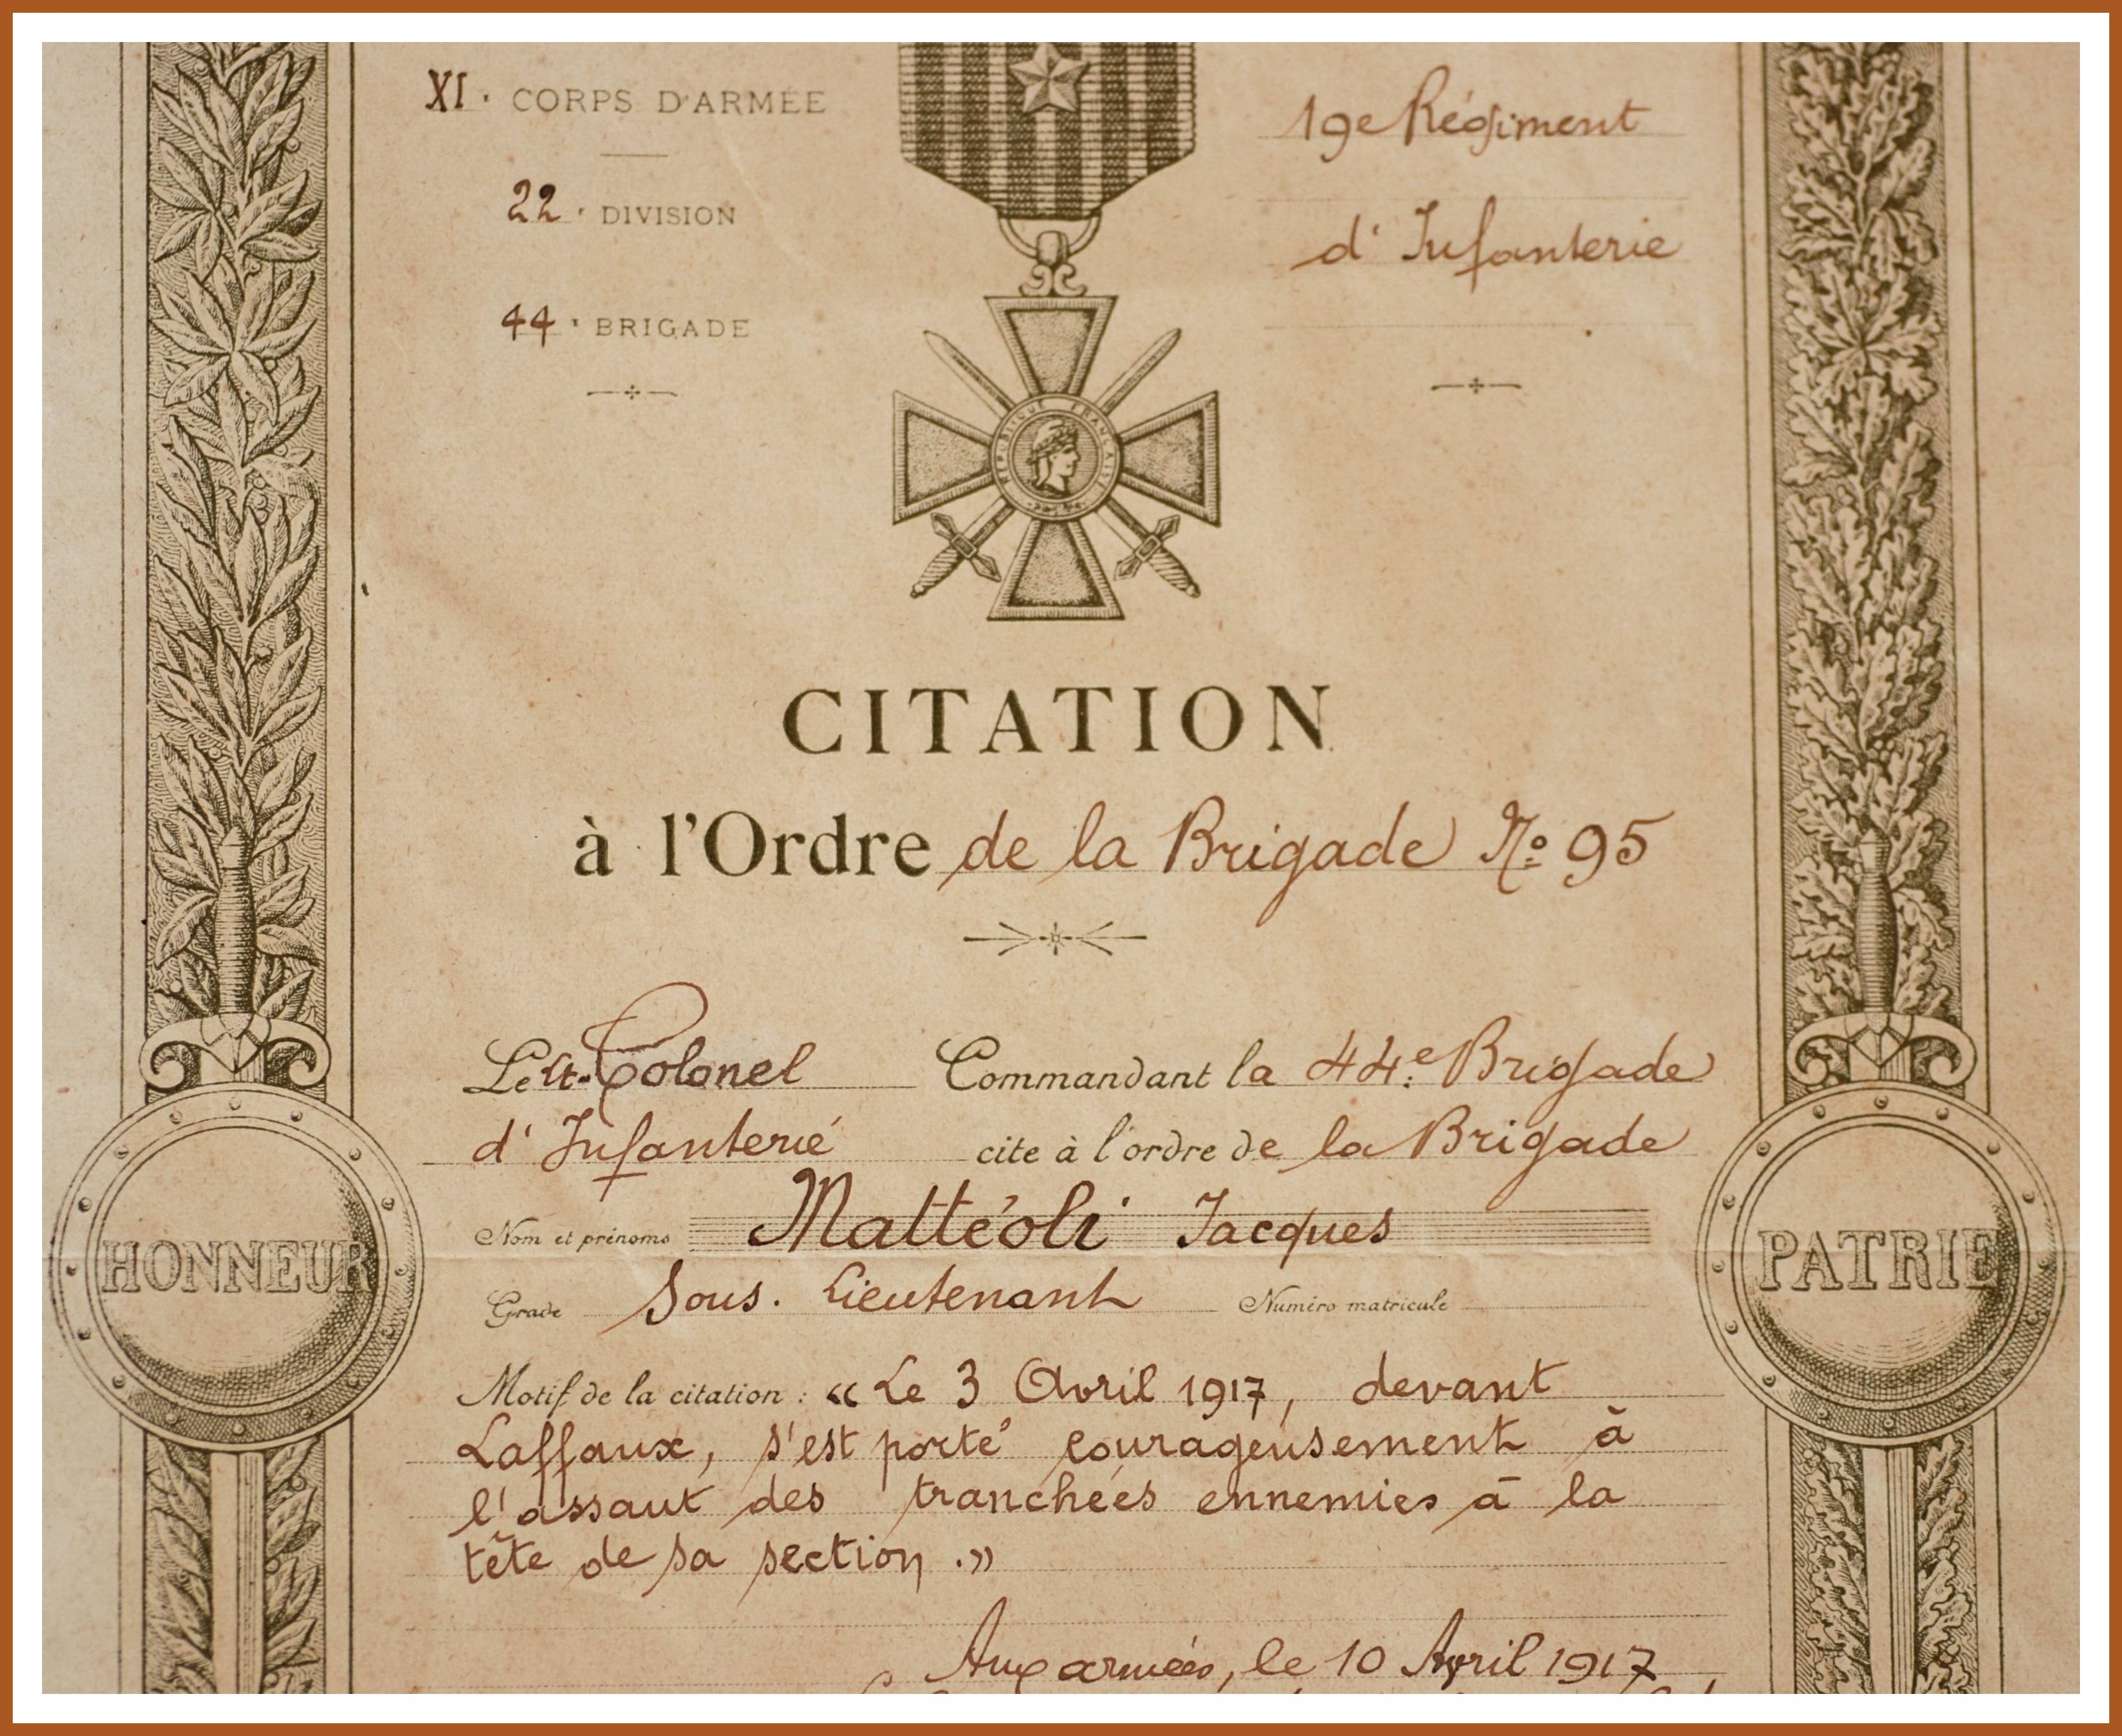 XI. CORPS D'ARMÉE
22. DIVISION
44. BRIGADE
19e Régiment
d'Infanterie
RÉPUBLIQUE FRANÇAISE
CITATION
à l'Ordre de la Brigade No 95
Le Lt-Colonel Commandant la 44e Brigade
d'Infanterie cite à l'ordre de la Brigade
Nom et prénoms Mattéoli Jacques
Grade Sous. Lieutenant Numéro matricule
Motif de la citation : « Le 3 Avril 1917, devant
Laffaux, s'est porté courageusement à
l'assaut des tranchées ennemies à la
tête de sa section .»
Aux armées, le 10 Avril 1917
HONNEUR
PATRIE